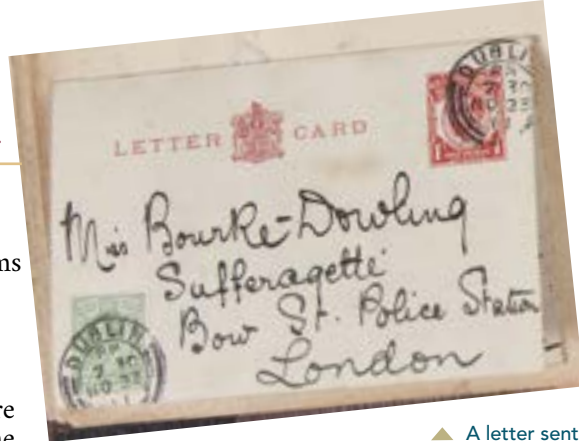 LETTER CARD
DUBLIN
Miss Bourke-Dowling
Sufferagette
Bow St. Police Station
London
DUBLIN
ms
re
A letter sent